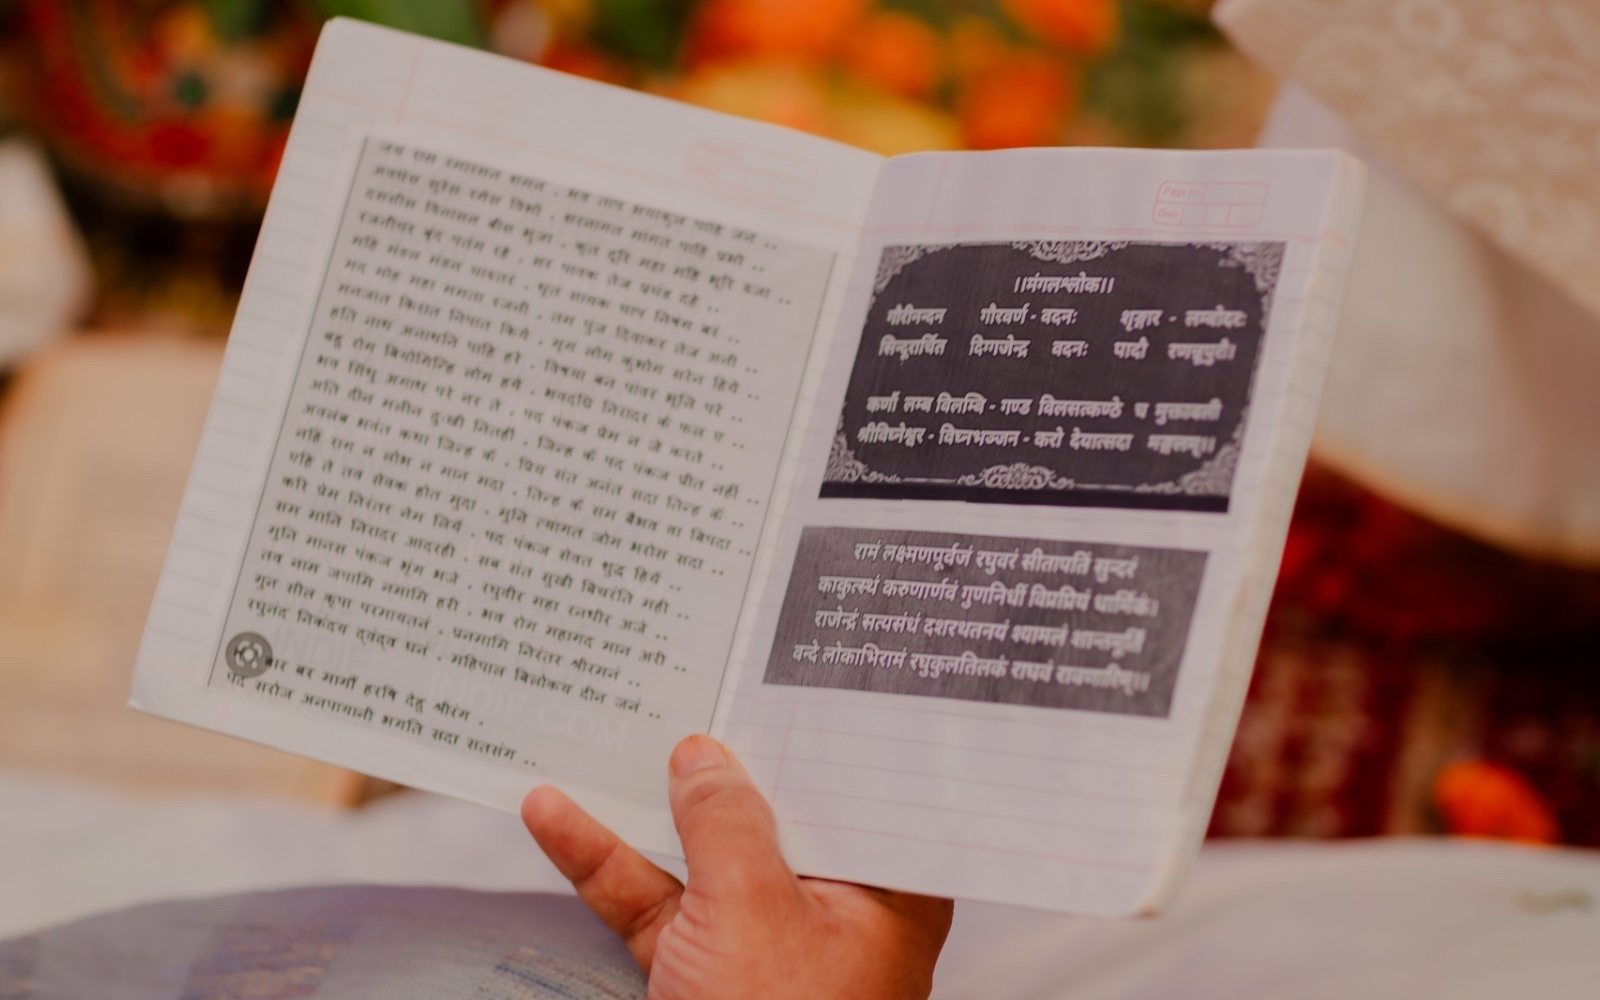 जय राम रमारमनं समनं . भव ताप भयाकुल पाहि जनं ..
अवधेस सुरेस रमेस बिभो . सरनागत मागत पाहि प्रभो ..
दससीस बिनासन बीस भुजा . कृत दूरि महा महि भूरि रुजा ..
रजनीचर बृंद पतंग रहे . सर पावक तेज प्रचंड दहे ..
महि मंडल मंडन चारुतरं . धृत सायक चाप निषंग बरं ..
मद मोह महा ममता रजनी . तम पुंज दिवाकर तेज अनी ..
मनजात किरात निपात किये . मृग लोग कुभोग सरेन हिये ..
हति नाथ अनाथनि पाहि हरे . बिषया बन पांवर भूलि परे ..
बहु रोग बियोगिन्हि लोग हये . भवदंघ्रि निरादर के फल ए ..
भव सिंधु अगाध परे नर ते . पद पंकज प्रेम न जे करते ..
अति दीन मलीन दुःखी नितहीं . जिन्ह कें पद पंकज प्रीत नहीं ..
अवलंब भवंत कथा जिन्ह कें . प्रिय संत अनंत सदा तिन्ह कें ..
नहिं राग न लोभ न मान मदा . तिन्ह कें सम बैभव वा बिपदा ..
एहि ते तव सेवक होत मुदा . मुनि त्यागत जोग भरोस सदा ..
करि प्रेम निरंतर नेम लियें . पद पंकज सेवत शुद्ध हियें ..
सम मानि निरादर आदरही . सब संत सुखी बिचरंति मही ..
मुनि मानस पंकज भृंग भजे . रघुवीर महा रनधीर अजे ..
तव नाम जपामि नमामि हरी . भव रोग महागद मान अरी ..
गुन सील कृपा परमायतनं . प्रनमामि निरंतर श्रीरमनं ..
रघुनंद निकंदय द्वंद्व घनं . महिपाल बिलोकय दीन जनं ..
बार बर मागौं हरषि देहु श्रीरंग .
पद सरोज अनपायनी भगति सदा सतसंग ..
Page No.
Date
।।मंगलश्लोक।।
गौरीनन्दन गौरवर्ण - वदनः शृङ्गार - लम्बोदरः
सिन्दूरार्चित दिग्गजेन्द्र वदनः पादौ रणन्नूपुरौ।
कर्णौ लम्ब विलम्बि - गण्ड विलसत्कण्ठे च मुक्तावली
श्रीविघ्नेश्वर - विघ्नभञ्जन - करो देयात्सदा मङ्गलम्।।
रामं लक्ष्मणपूर्वजं रघुवरं सीतापतिं सुन्दरं
काकुत्स्थं करुणार्णवं गुणनिधीं विप्रप्रियं धार्मिकं।
राजेन्द्रं सत्यसंधं दशरथतनयं श्यामलं शान्तमूर्तिं
वन्दे लोकाभिरामं रघुकुलतिलकं राघवं रावणारिम्।।